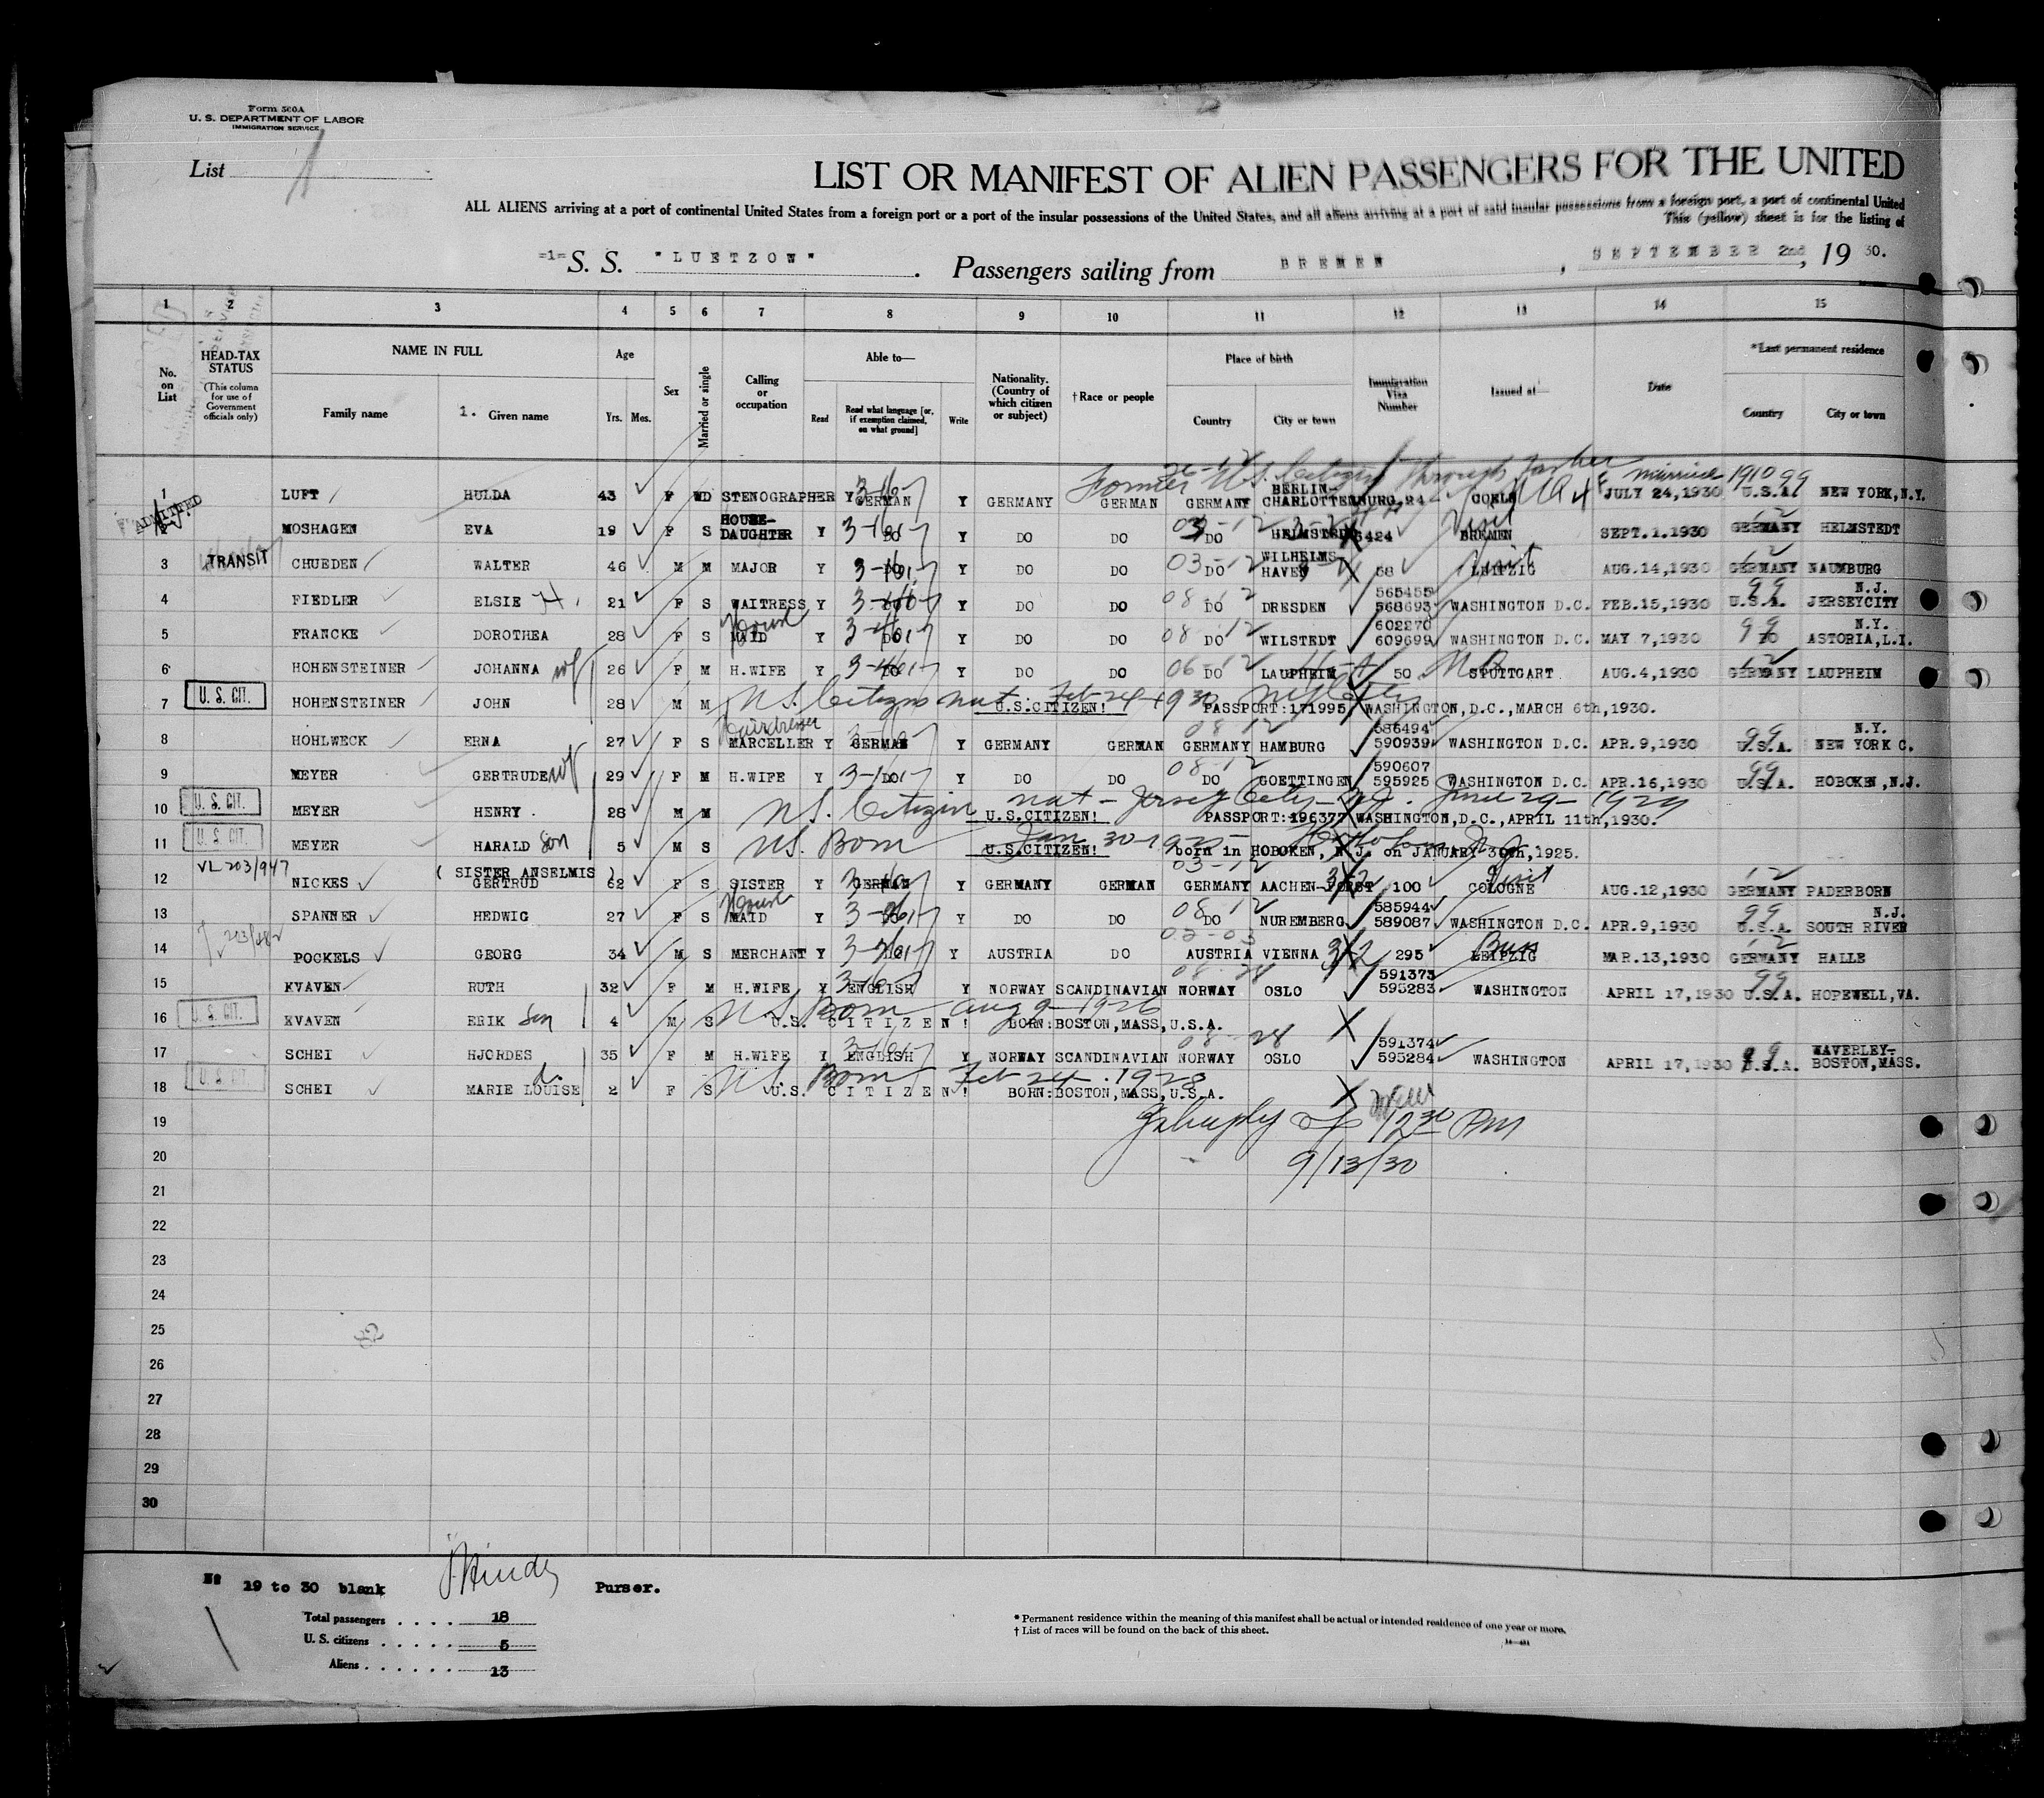 Form 500A
U. S. DEPARTMENT OF LABOR
IMMIGRATION SERVICE
List 1
LIST OR MANIFEST OF ALIEN PASSENGERS FOR THE UNITED
ALL ALIENS arriving at a port of continental United States from a foreign port or a port of the insular possessions of the United States, and all aliens arriving at a port of said insular possessions from a foreign port, a port of continental United
This (yellow) sheet is for the listing of
=1= S. S. "LUETZOW" . Passengers sailing from BREMEN , SEPTEMBER 2nd, 19 30.
1 2 3 4 5 6 7 8 9 10 11 12 13 14 15
No. on List HEAD-TAX STATUS (This column for use of Government officials only) NAME IN FULL Family name 1. Given name Age Yrs. Mos. Sex Married or single Calling or occupation Able to— Read Read what language [or, if exemption claimed, on what ground] Write Nationality. (Country of which citizen or subject) † Race or people Place of birth Country City or town Immigration Visa Number Issued at— Date *Last permanent residence Country City or town
Former U.S. Citizen through father married 1910 99
ADMITTED
1 LUFT HULDA 43 F WD STENOGRAPHER Y GERMAN Y GERMANY GERMAN GERMANY BERLIN-CHARLOTTENBURG 24 JULY 24,1930 U.S.A. NEW YORK,N.Y.
2 MOSHAGEN EVA 19 F S HOUSE-DAUGHTER Y DO Y DO DO DO HELMSTEDT 6424 BREMEN Visit SEPT.1.1930 GERMANY HELMSTEDT
3 TRANSIT CHUEDEN WALTER 46 M M MAJOR Y DO Y DO DO 03-12 DO WILHELMS HAVEN 88 LEIPZIG AUG.14,1930 GERMANY NAUMBURG
4 FIEDLER ELSIE H. 21 F S WAITRESS Y DO Y DO DO 08-12 DO DRESDEN 565455 568693 WASHINGTON D.C. FEB.15,1930 99 U.S.A. N.J. JERSEYCITY
5 FRANCKE DOROTHEA 28 F S House MAID Y DO Y DO DO 08-12 DO WILSTEDT 602270 609699 WASHINGTON D.C. MAY 7,1930 99 DO N.Y. ASTORIA,L.I.
6 HOHENSTEINER JOHANNA wf 26 F M H.WIFE Y DO Y DO DO 06-12 DO LAUPHEIM 50 STUTTGART AUG.4,1930 12 GERMANY LAUPHEIM
7 U. S. CIT. HOHENSTEINER JOHN 28 M M U.S. Citizen nat. Feb 24-1930 U.S.CITIZEN! PASSPORT:171995, WASHINGTON,D.C.,MARCH 6th,1930.
8 HOHLWECK ERNA 27 F S Hairdresser MARCELLER Y GERMAN Y GERMANY GERMAN 08-12 GERMANY HAMBURG 586494 590939 WASHINGTON D.C. APR.9,1930 99 U.S.A. N.Y. NEW YORK C.
9 MEYER GERTRUDE wf 29 F M H.WIFE Y DO Y DO DO 08-12 DO GOETTINGEN 590607 595925 WASHINGTON D.C. APR.16,1930 99 U.S.A. HOBOKEN,N.J.
10 U. S. CIT. MEYER HENRY . 28 M M U.S. Citizen nat - Jersey City - N.J. June 29-1929 U.S.CITIZEN! PASSPORT:196377 WASHINGTON,D.C.,APRIL 11th,1930.
11 U. S. CIT. MEYER HARALD Son 5 M S U.S. Born Jan 30-1925 U.S.CITIZEN! born in HOBOKEN, N.J. on JANUARY 30th,1925.
VL 203/947
12 NICKES ( SISTER ANSELMIS ) GERTRUD 62 F S SISTER Y GERMAN Y GERMANY GERMAN 03-12 GERMANY AACHEN-FORST 100 COLOGNE Visit AUG.12,1930 GERMANY PADERBORN
13 SPANNER HEDWIG 27 F S House MAID Y DO Y DO DO 08-12 DO NUREMBERG 585944 589087 WASHINGTON D.C. APR.9,1930 99 U.S.A. N.J. SOUTH RIVER
14 POCKELS GEORG 34 M S MERCHANT Y DO Y AUSTRIA DO AUSTRIA VIENNA 295 Buss LEIPZIG MAR.13,1930 12 GERMANY HALLE
15 KVAVEN RUTH 32 F M H.WIFE Y ENGLISH Y NORWAY SCANDINAVIAN 08-28 NORWAY OSLO 591373 595283 WASHINGTON APRIL 17,1930 99 U.S.A. HOPEWELL,VA.
16 U. S. CIT. KVAVEN ERIK Son 4 M S US Born Aug 9-1926 U.S. CITIZEN! BORN:BOSTON,MASS,U.S.A.
17 SCHEI HJORDES 35 F M H.WIFE Y ENGLISH Y NORWAY SCANDINAVIAN 08-28 NORWAY OSLO 591374 595284 WASHINGTON APRIL 17,1930 99 U.S.A. WAVERLEY-BOSTON,MASS.
18 U. S. CIT. SCHEI MARIE LOUISE da 2 F S US. Born Feb 24 - 1928 U.S. CITIZEN! BORN:BOSTON,MASS,U.S.A.
19 12 30 PM
20 9/13/30
21
22
23
24
25
26
27
28
29
30
No 19 to 30 blank Purser.
Total passengers . . . . 18
U. S. citizens . . . . . 5
Aliens . . . . . . 13
* Permanent residence within the meaning of this manifest shall be actual or intended residence of one year or more.
† List of races will be found on the back of this sheet.